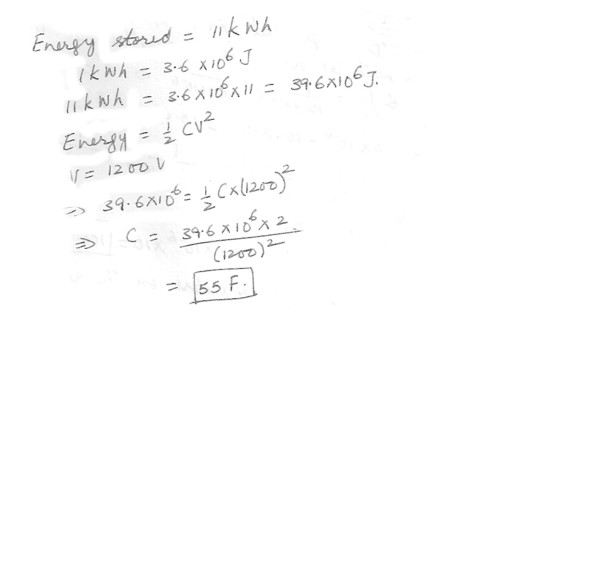 Energy stored = 11 k Wh
1 k Wh = 3.6 x 10⁶ J
11 k Wh = 3.6 x 10⁶ x 11 = 39.6x10⁶ J.
Energy = ½ CV²
V = 1200 V
⇒ 39.6x10⁶ = ½ C x (1200)²
⇒ C = 39.6 x 10⁶ x 2 / (1200)²
= 55 F.